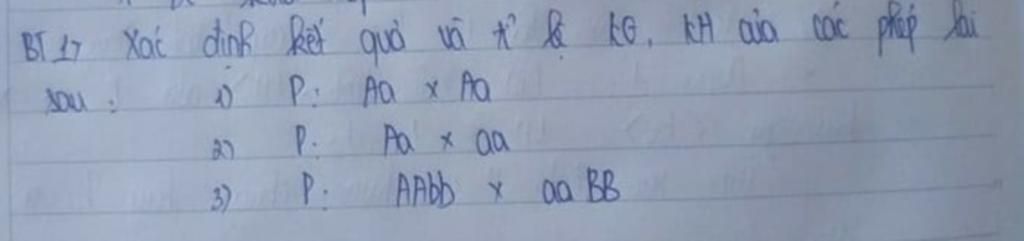 BT 1) Xác định kết quả và tỉ lệ KG, KH của các phép lai
sau : 1) P: Aa x Aa
2) P: Aa x aa
3) P: AAbb x aaBB